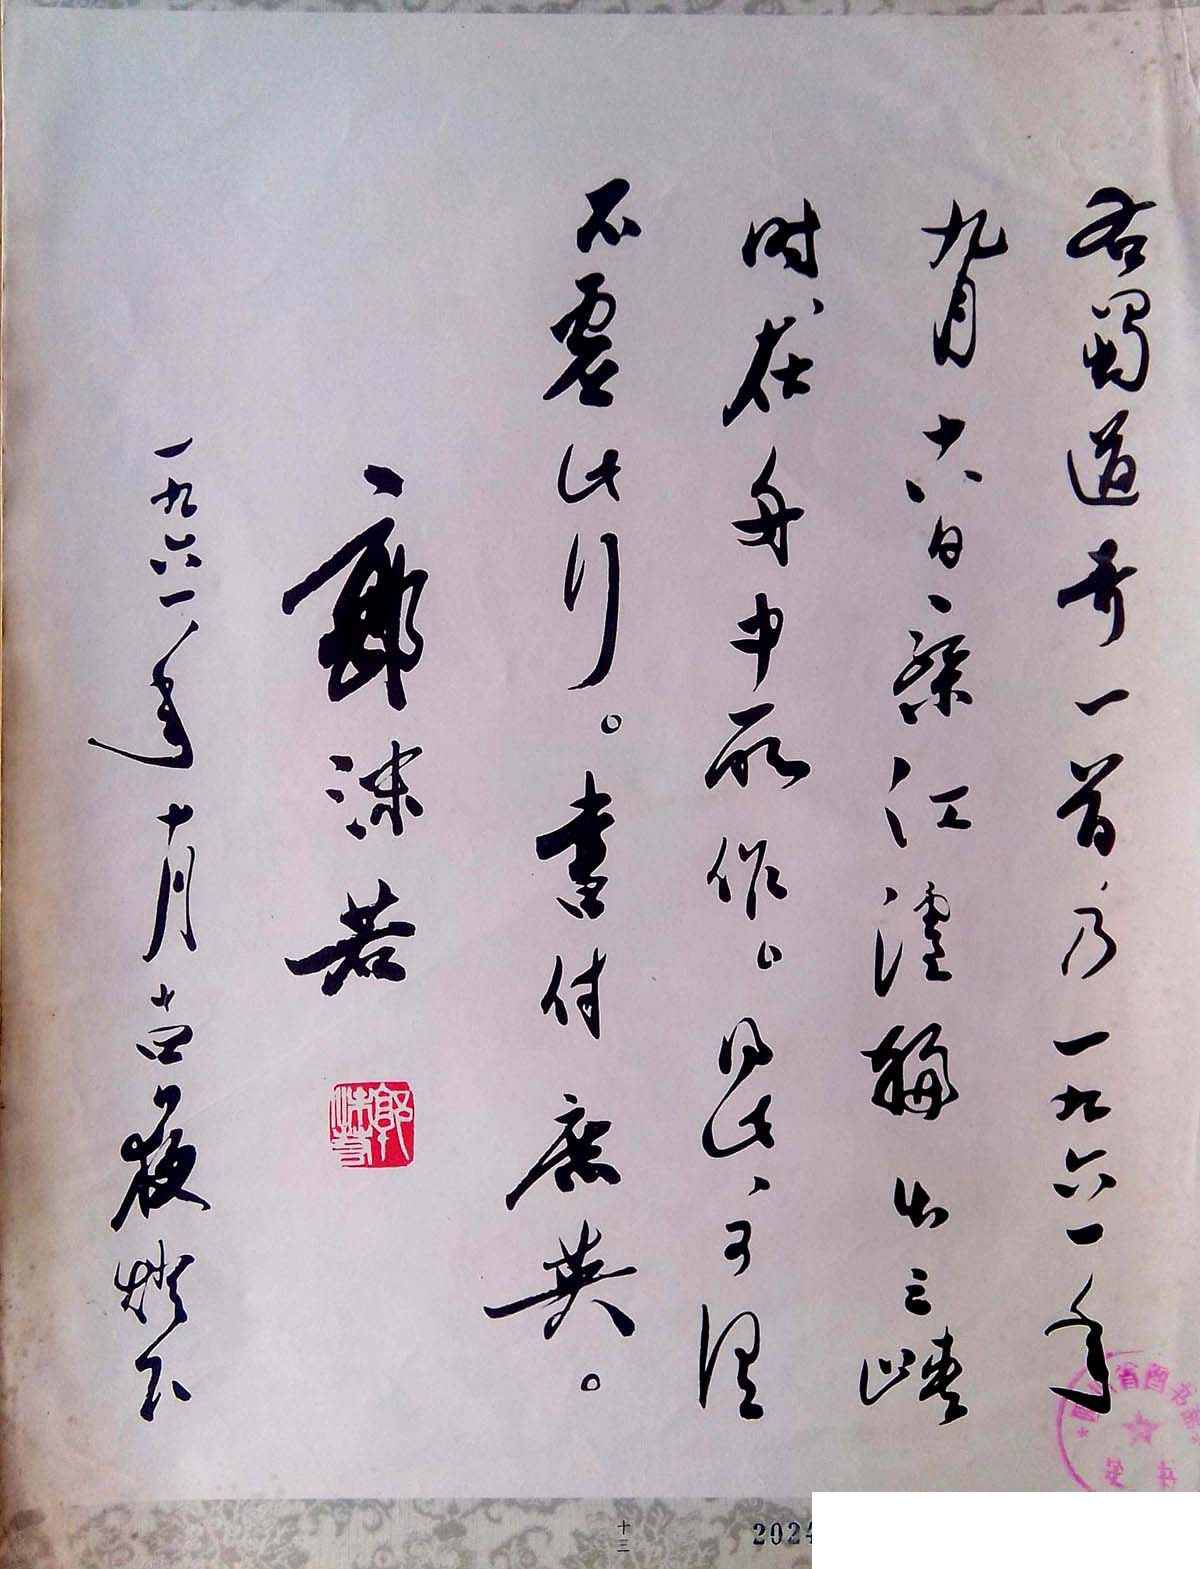 右蜀道奇一首乃一九六一年
九月十六日乘江渡輪出三峽
时在舟中所作。得此可谓
不虚此行。书付庶英。
郭沫若
郭沫若
一九六一年十月廿四夜灯下
省图书
十三
202